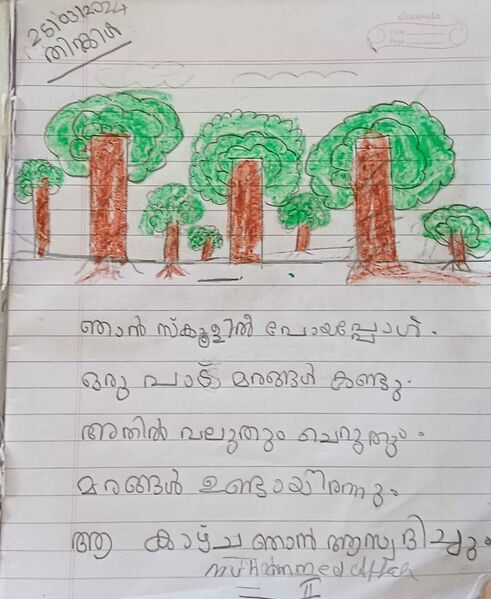 classmate
Date
Page
25/03/2024
തിങ്കൾ
ഞാൻ സ്കൂളിൽ പോയപ്പോൾ.
ഒരു പാട് മരങ്ങൾ കണ്ടു.
അതിൽ വലുതും ചെറുതും.
മരങ്ങൾ ഉണ്ടായിരന്നും.
ആ കാഴ്ച ഞാൻ ആസ്വദിച്ചും.
Muhammed
II